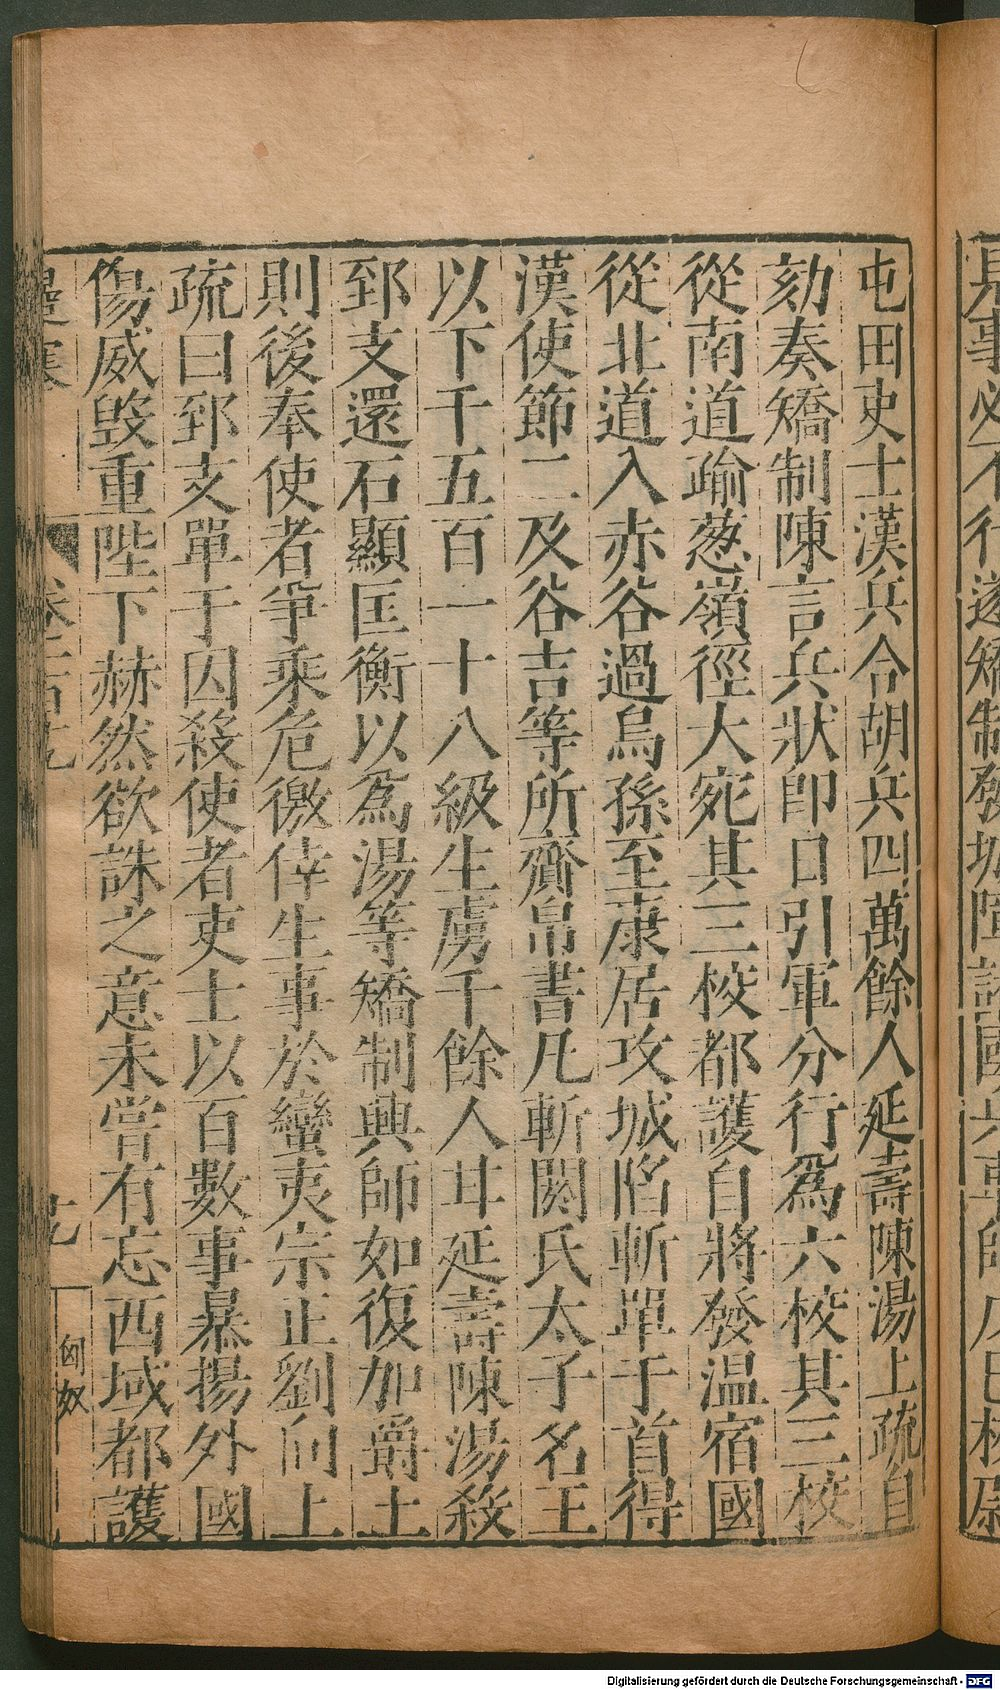 屯田吏士漢兵合胡兵四萬餘人延壽陳湯上疏自
劾奏矯制陳言兵狀即日引軍分行爲六校其三校
從南道踰葱嶺徑大宛其三校都護自將發温宿國
從北道入赤谷過烏孫至康居攻城陷斬單于首得
漢使節二及谷吉等所齎帛書凡斬閼氏太子名王
以下千五百一十八級生虜千餘人甘延壽陳湯殺
郅支還石顯匡衡以爲湯等矯制興師如復加爵土
則後奉使者爭乘危徼倖生事於蠻夷宗正劉向上
疏曰郅支單于囚殺使者吏士以百數事暴揚外國
傷威毀重陛下赫然欲誅之意未嘗有忘西域都護
匈奴
Digitalisierung gefördert durch die Deutsche Forschungsgemeinschaft - DFG